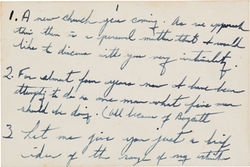 1. A new church is coming. As we approach
this there is a personal matter that I would
like to discuss with you very intimately.
2. For about four years now I have been
trying to do as one man what five men
should be doing. (All because of
3. Let me give you just a brief
idea of the range of my activities